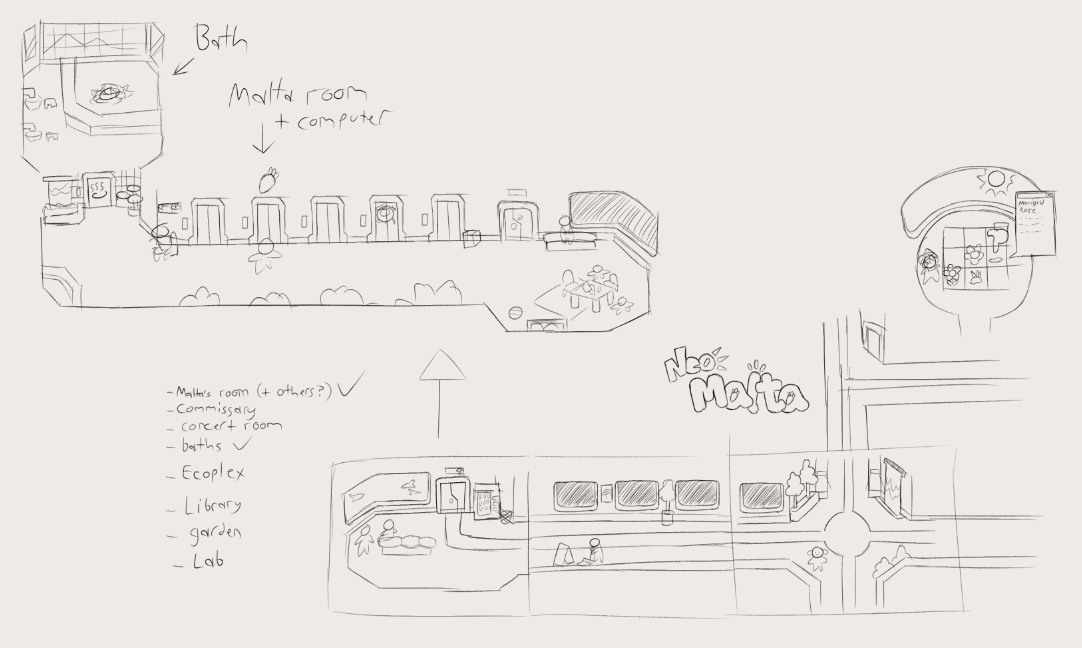 Bath
Malta room
+ computer
Marigold
Rose
Neo
Malta
- Malta's room (+ others?) ✓
- Commissary
- concert room
- baths ✓
- Ecoplex
- Library
- garden
- Lab